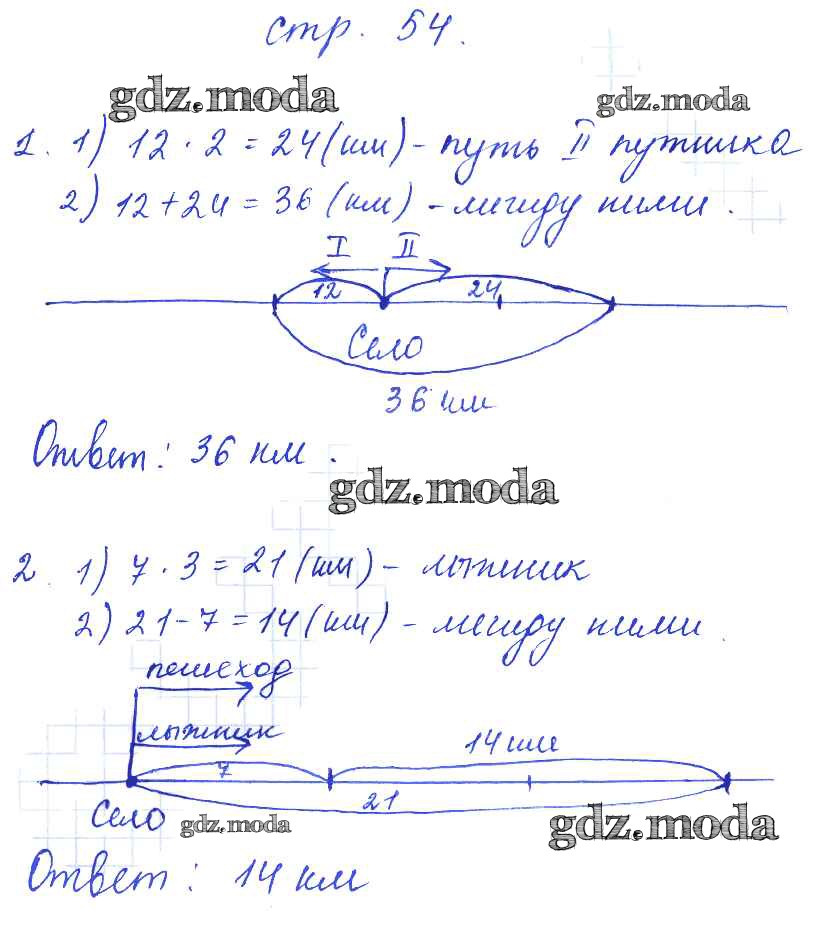 стр. 54.
gdz.moda gdz.moda
1. 1) 12 · 2 = 24 (км) - путь II путника
2) 12 + 24 = 36 (км) - между ними.
I II
12 24
Село
36 км
Ответ: 36 км.
gdz.moda
2. 1) 7 · 3 = 21 (км) - лыжник
2) 21 - 7 = 14 (км) - между ними.
пешеход
лыжник 14 км
7
21
Село gdz.moda gdz.moda
Ответ: 14 км